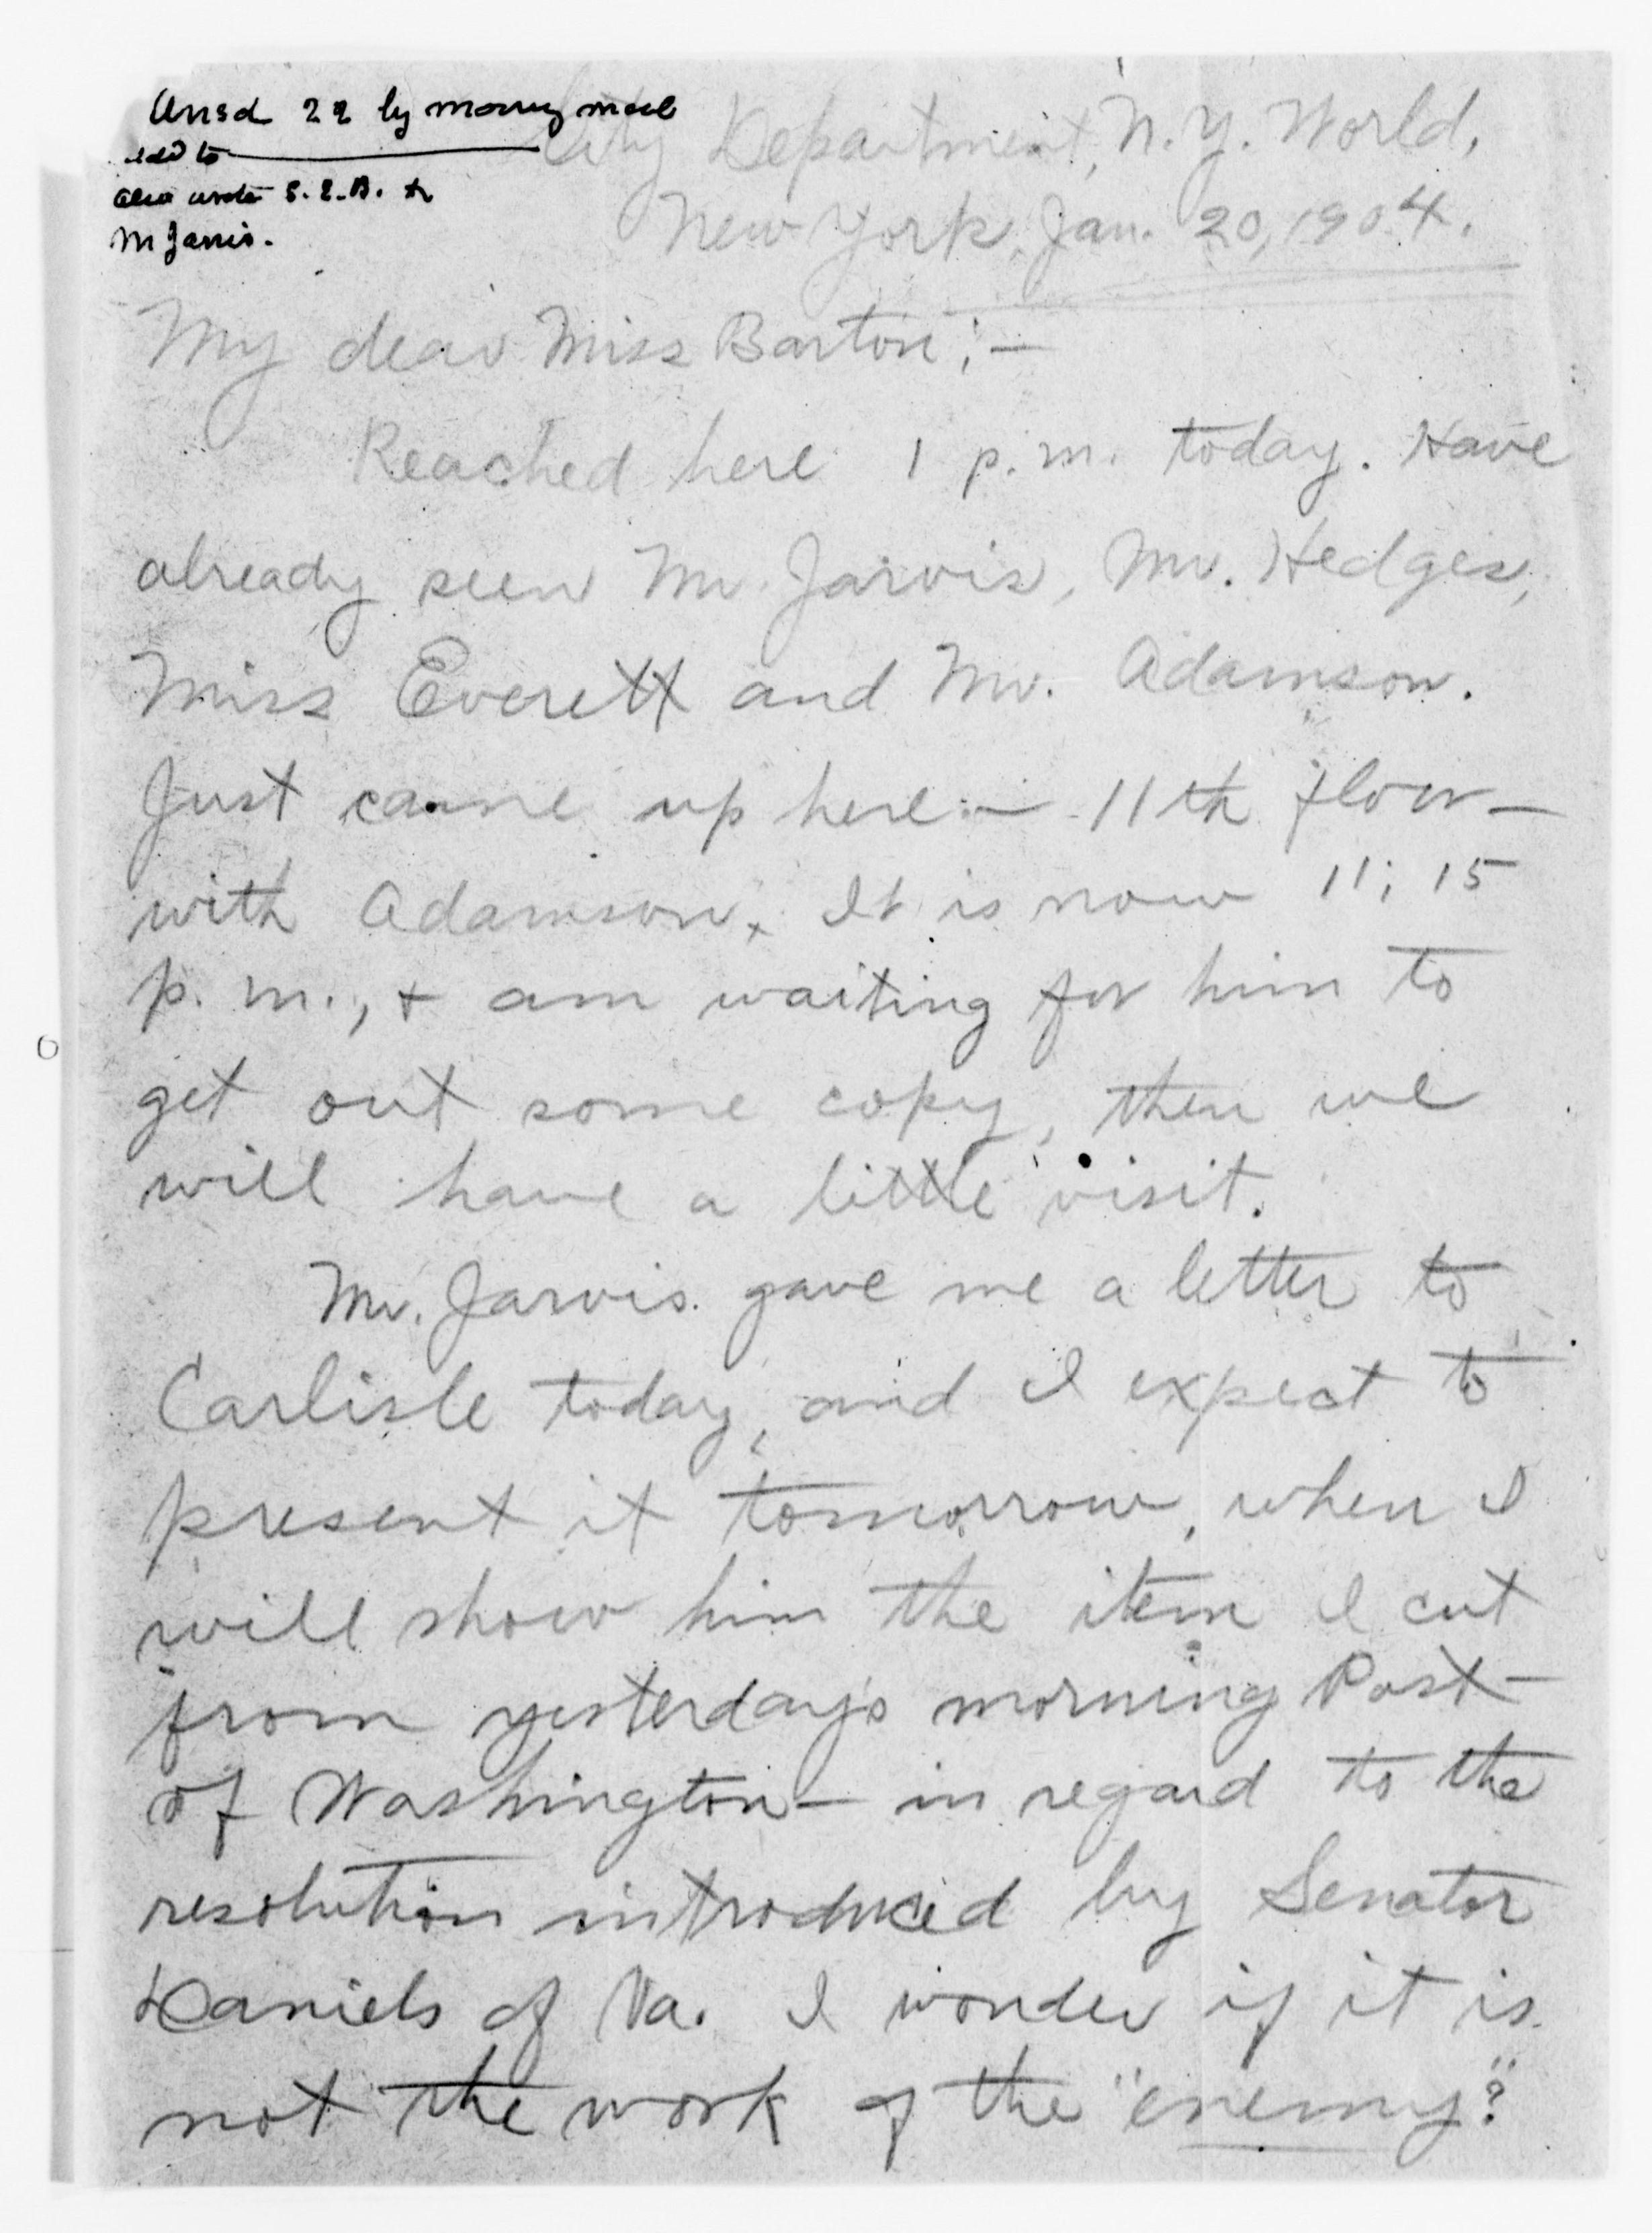 Ansd 22 by morng mail
add to
also wrote S. E. B. &
M Jarvis.
City Department, N. Y. World,
New York, Jan. 20, 1904.
My dear Miss Barton; —
Reached here 1 p. m. today. Have
already seen Mr. Jarvis, Mr. Hedges,
Miss Everett and Mr. Adamson.
Just came up here — 11th floor —
with Adamson. It is now 11; 15
p. m., + am waiting for him to
get out some copy, then we
will have a little visit.
Mr. Jarvis gave me a letter to
Carlisle today, and I expect to
present it tomorrow, when I
will show him the item I cut
from yesterday's morning Post —
of Washington — in regard to the
resolution introduced by Senator
Daniels of Va. I wonder if it is
not the work of the "enemy"?